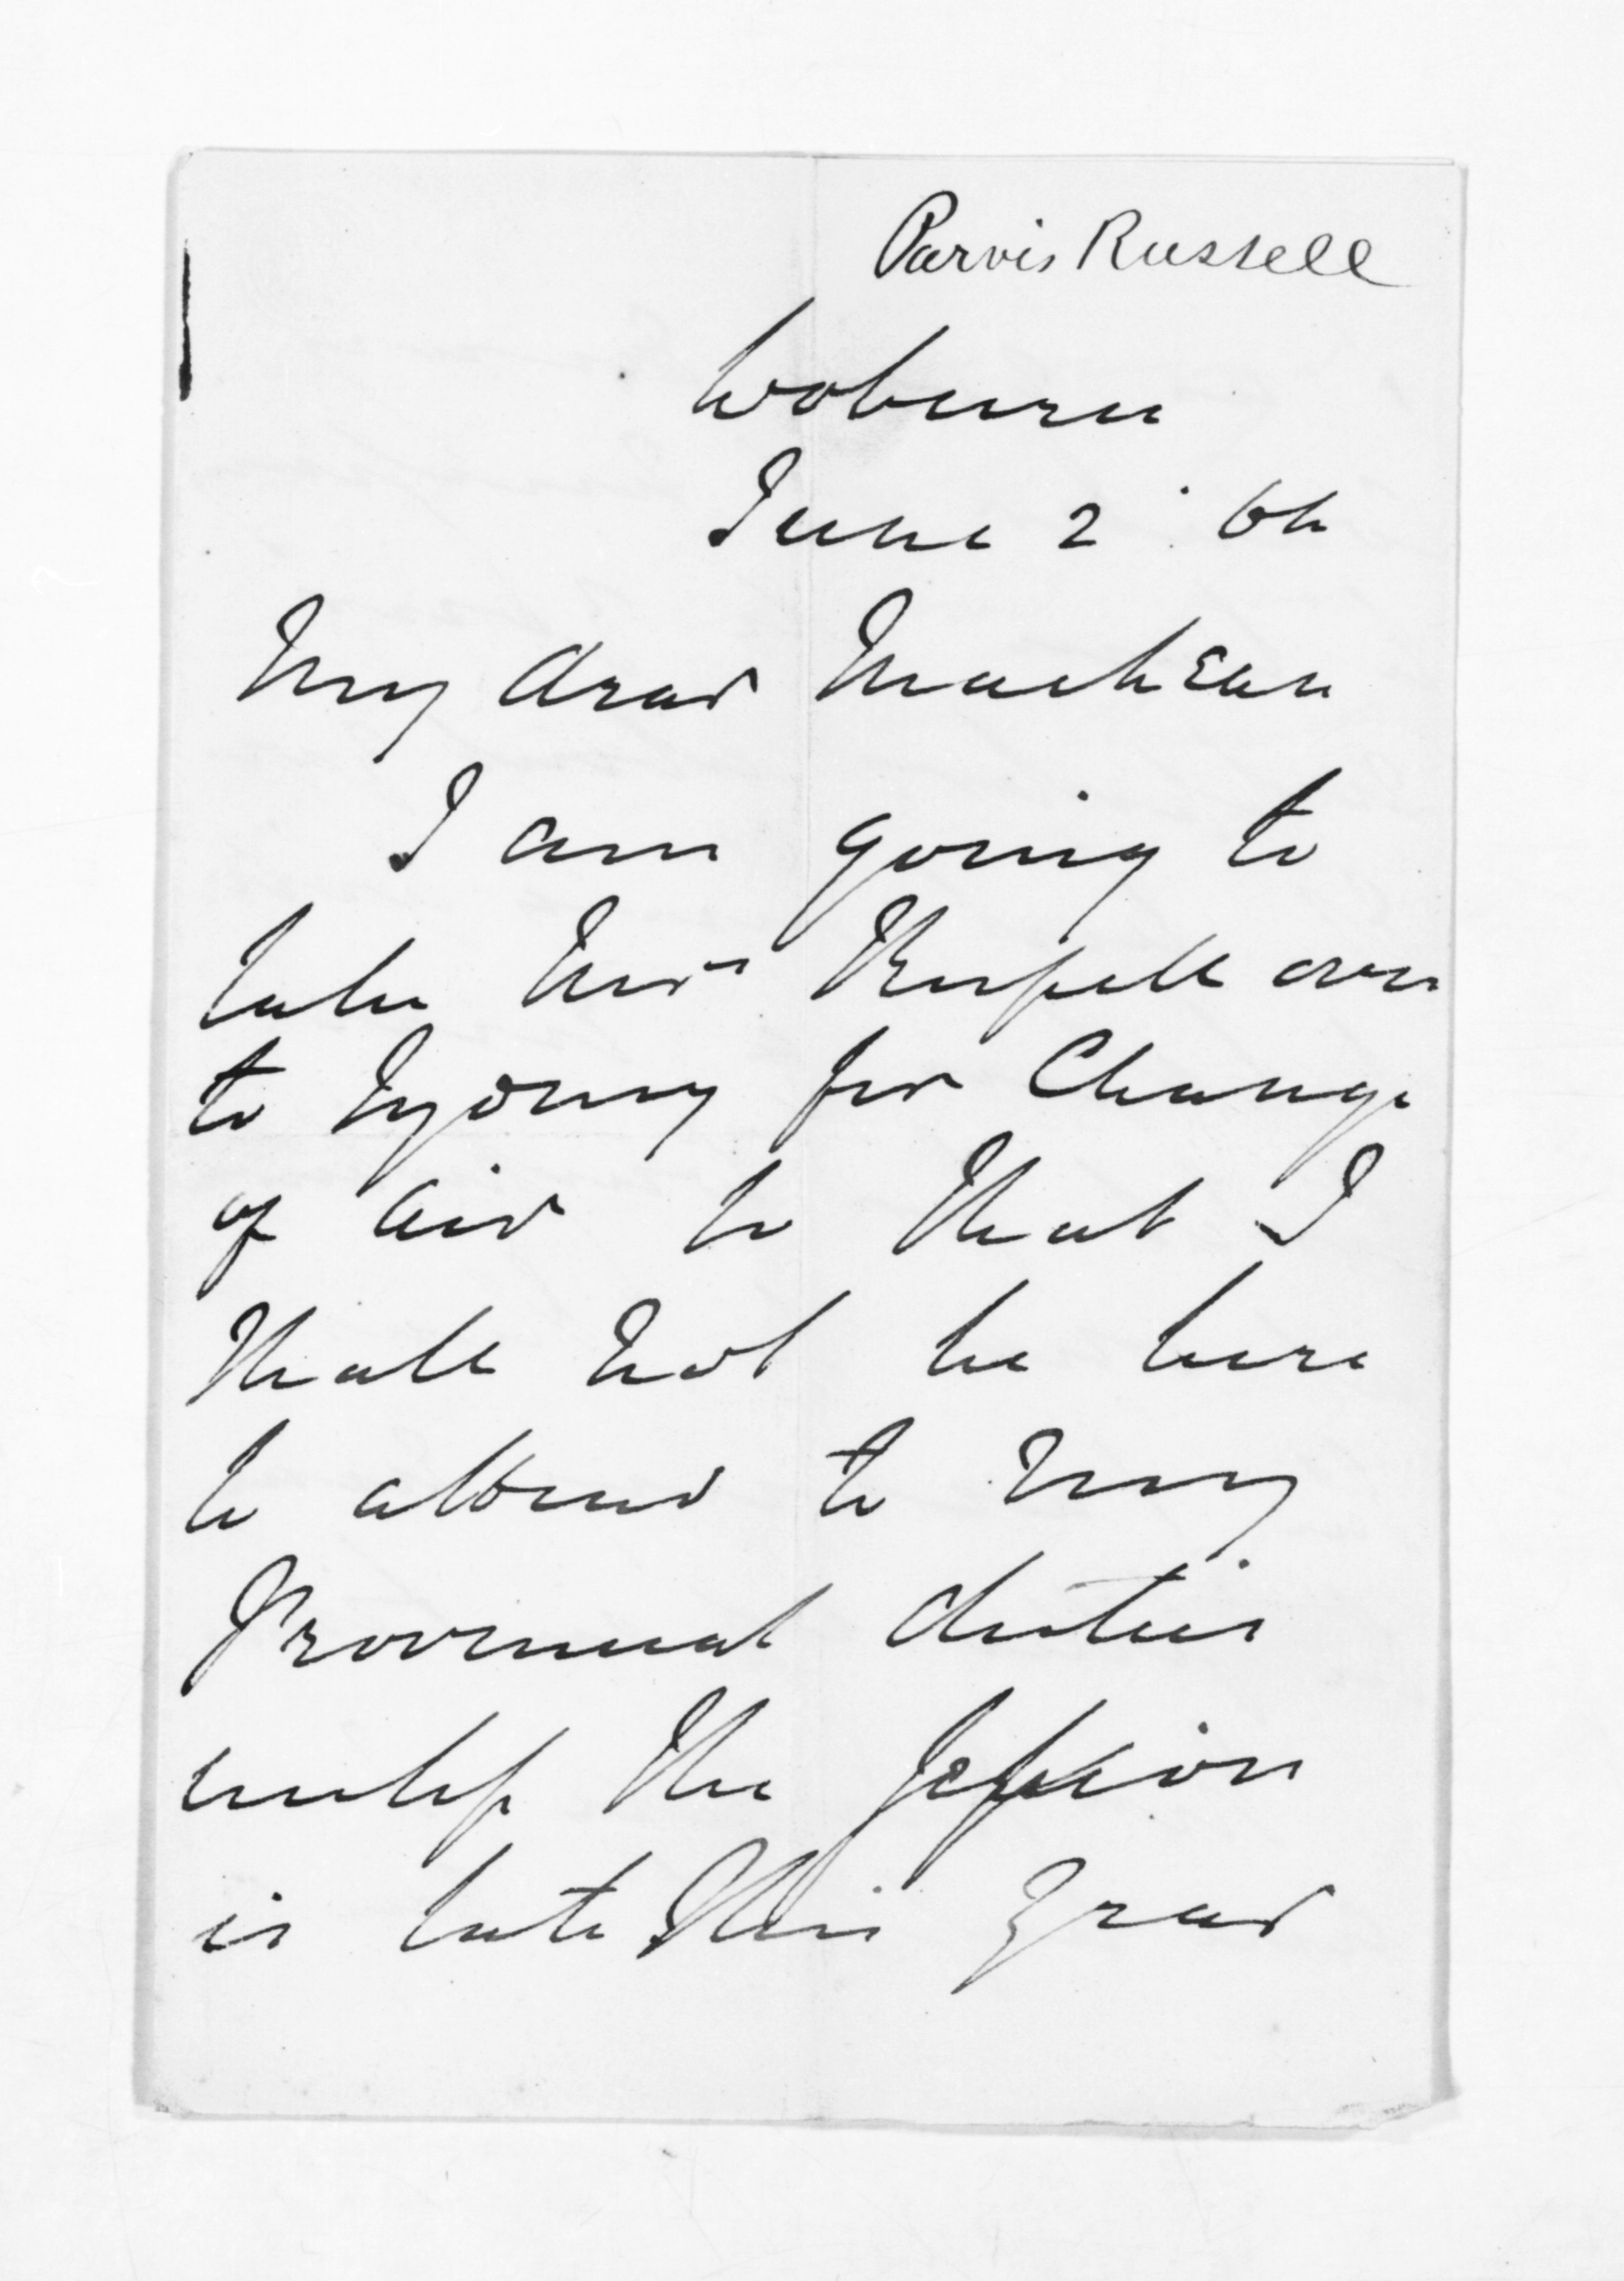 Purvis Russell
Woburn
June 2 66
My dear Maclean
I am going to
take Mrs Russell over
to Sydney for Change
of air so that I
shall not be here
to attend to my
Provincial duties
unless the Session
is late this year